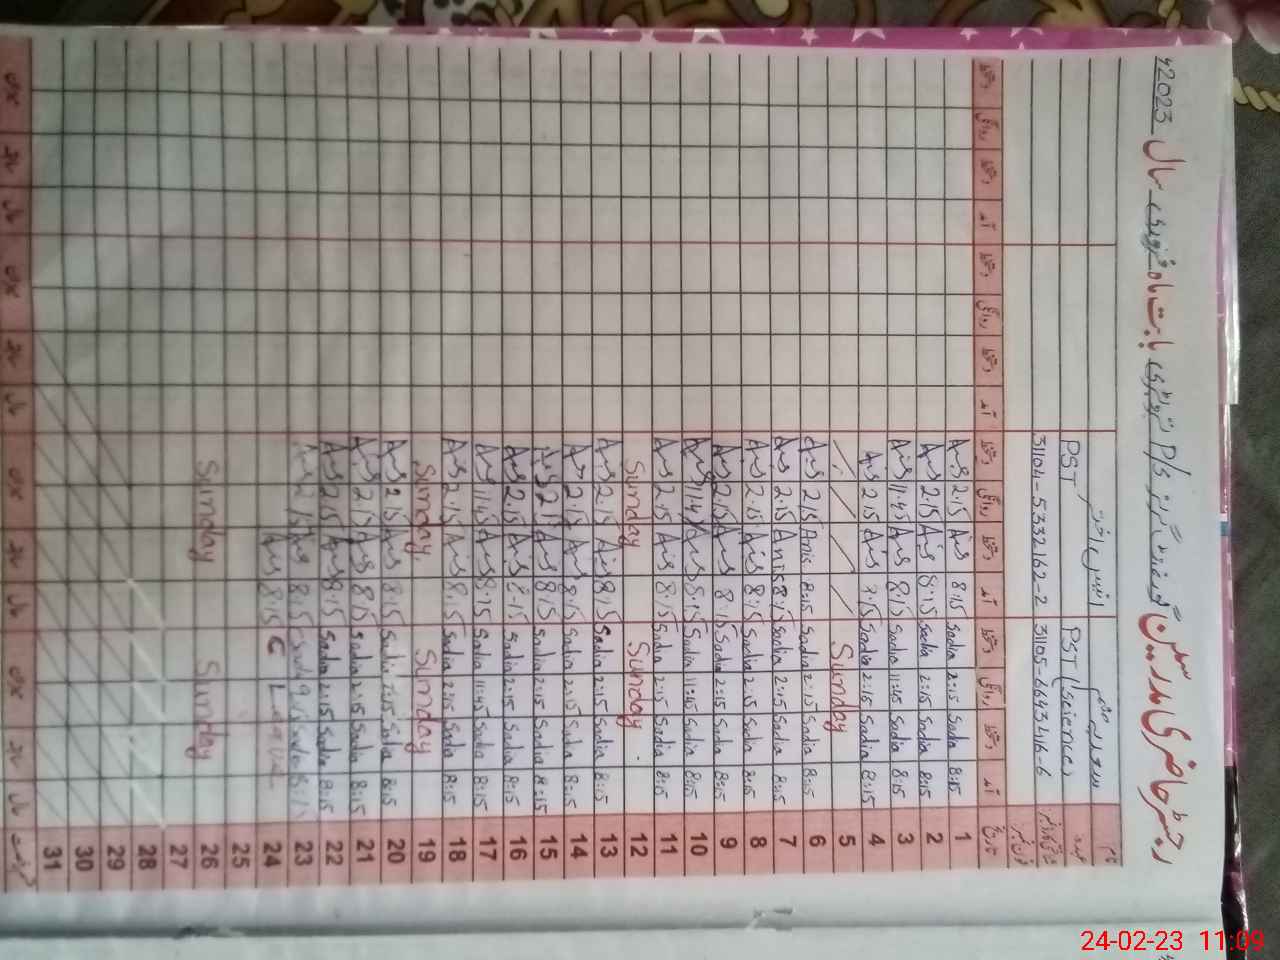 رجسٹر حاضری مدرسین گورنمنٹ گرلز P/S بابت ماہ فروری سال 2023ء
نام
عہدہ PST (Science) PST
شناختی کارڈ نمبر 31105-6643416-6 31101-5332162-2
تاریخ آمد دستخط روانگی دستخط آمد دستخط روانگی دستخط آمد دستخط روانگی دستخط آمد دستخط روانگی دستخط
1 8:15 Sadia 2:15 Sadia 8:15 Anis 2:15 Anis
2 8:15 Sadia 2:15 Sadia 8:15 Anis 2:15 Anis
3 8:15 Sadia 11:45 Sadia 8:15 Anis 11:45 Anis
4 8:15 Sadia 2:15 Sadia 8:15 Anis 2:15 Anis
5 Sunday
6 8:15 Sadia 2:15 Sadia 8:15 Anis 2:15 Anis
7 8:15 Sadia 2:15 Sadia 8:15 Anis 2:15 Anis
8 8:15 Sadia 2:15 Sadia 8:15 Anis 2:15 Anis
9 8:15 Sadia 2:15 Sadia 8:15 Anis 2:15 Anis
10 8:15 Sadia 11:45 Sadia 8:15 Anis 11:45 Anis
11 8:15 Sadia 2:15 Sadia 8:15 Anis 2:15 Anis
12 Sunday Sunday
13 8:15 Sadia 2:15 Sadia 8:15 Anis 2:15 Anis
14 8:15 Sadia 2:15 Sadia 8:15 Anis 2:15 Anis
15 8:15 Sadia 2:15 Sadia 8:15 Anis 2:15 Anis
16 8:15 Sadia 2:15 Sadia 8:15 Anis 2:15 Anis
17 8:15 Sadia 11:45 Sadia 8:15 Anis 11:45 Anis
18 8:15 Sadia 2:15 Sadia 8:15 Anis 2:15 Anis
19 Sunday Sunday
20 8:15 Sadia 2:15 Sadia 8:15 Anis 2:15 Anis
21 8:15 Sadia 2:15 Sadia 8:15 Anis 2:15 Anis
22 8:15 Sadia 2:15 Sadia 8:15 Anis 2:15 Anis
23 8:15 Sadia Sadia 8:15 Anis 2:15 Anis
24 C Leave 8:15 Anis
25
26 Sunday Sunday
27
28
29
30
31
24-02-23 11:09